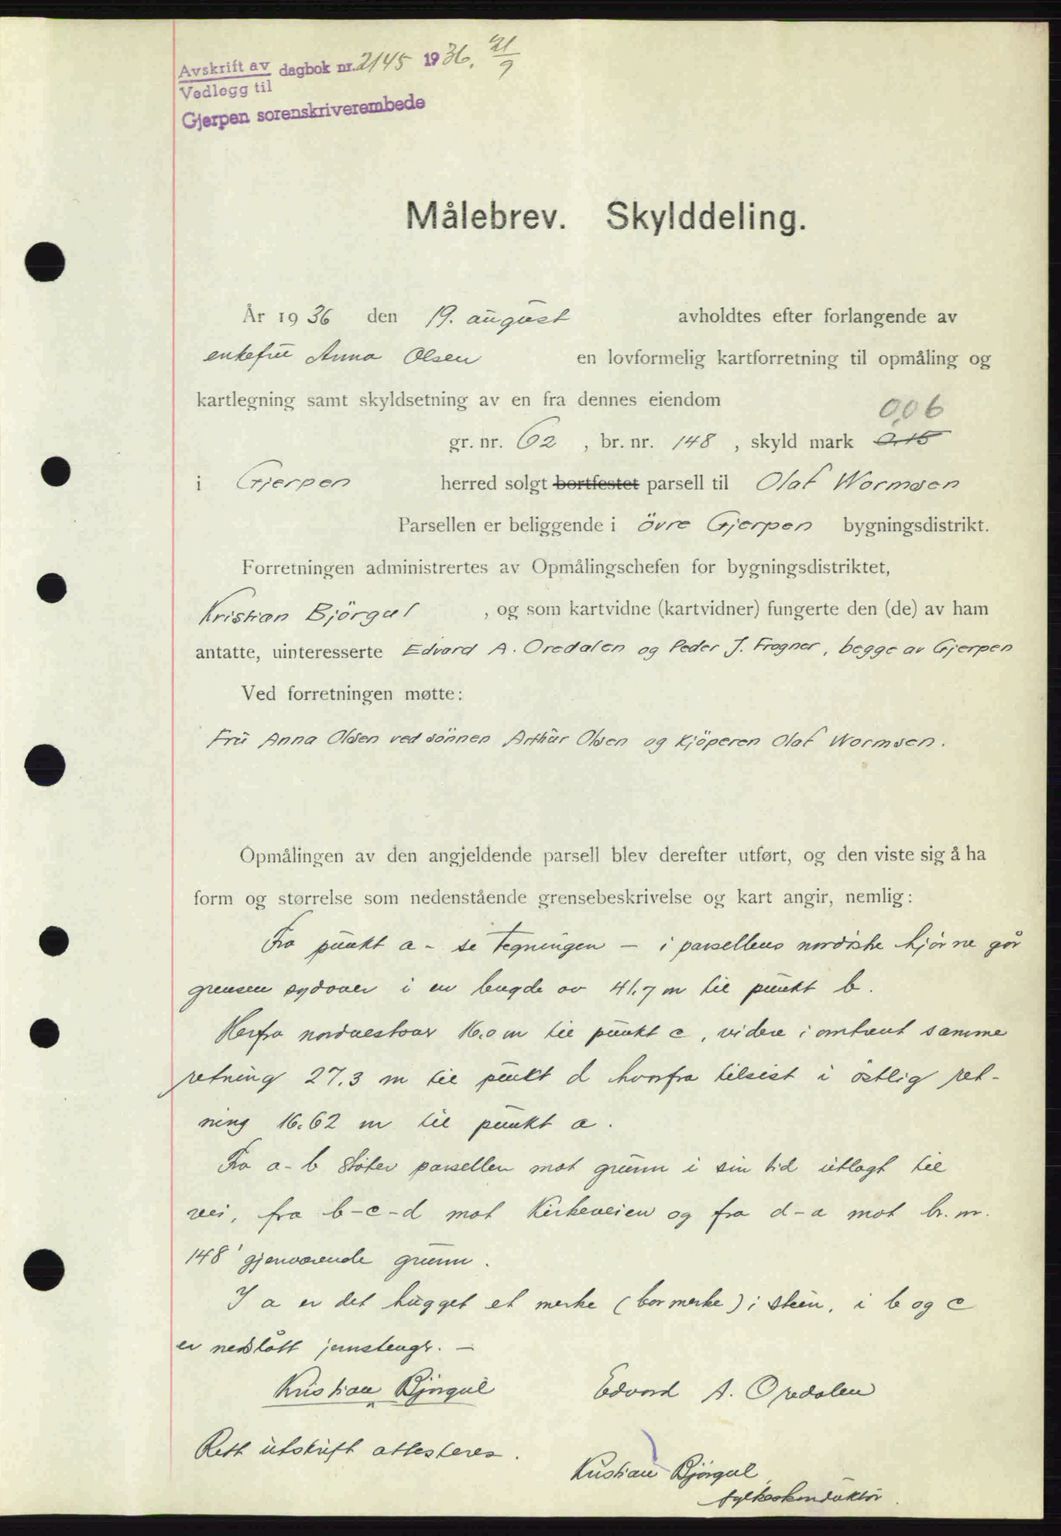 Avskrift av dagbok nr. 2145 1936, 21/9
Vedlegg til
Gjerpen sorenskriverembede
Målebrev. Skylddeling.
År 1936 den 19. august avholdtes efter forlangende av
enkefru Anna Olsen en lovformelig kartforretning til opmåling og
kartlegning samt skyldsetning av en fra dennes eiendom
0,06
gr. nr. 62, br. nr. 148, skyld mark 0.15
i Gjerpen herred solgt bortfestet parsell til Olaf Wormsen
Parsellen er beliggende i övre Gjerpen bygningsdistrikt.
Forretningen administrertes av Opmålingschefen for bygningsdistriktet,
Kristian Björgul, og som kartvidne (kartvidner) fungerte den (de) av ham
antatte, uinteresserte Edvard A. Oredalen og Peder J. Frogner, begge av Gjerpen
Ved forretningen møtte:
Fru Anna Olsen ved sönnen Arthur Olsen og Kjöperen Olaf Wormsen.
Opmålingen av den angjeldende parsell blev derefter utført, og den viste sig å ha
form og størrelse som nedenstående grensebeskrivelse og kart angir, nemlig:
Fra punkt a - se tegningen - i parsellens nordöstre hjörne går
grensen sydover i en lengde av 41.7 m til punkt b.
Herfra nordvestover 16.0 m til punkt c, videre i omtrent samme
retning 27.3 m til punkt d hvorfra tilsist i östlig ret-
ning 16.62 m til punkt a.
Fra a-b stöter parsellen mot grunn i sin tid utlagt til
vei, fra b-c-d mot Kirkeveien og fra d-a mot br. nr.
148' gjenværende grunn.
I a er det hugget et merke (bormerke) i sten, i b og c
er nedslått jernstenger. -
Kristian Björgul Edvard A. Oredalen
Rett utskrift attesteres.
Kristian Björgul
fylkeskonduktör.